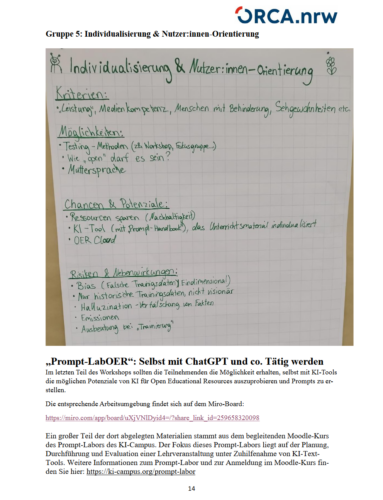 ORCA.nrw
Gruppe 5: Individualisierung & Nutzer:innen-Orientierung
Individualisierung & Nutzer:innen-Orientierung
Kriterien:
• Leistung, Medienkompetenz, Menschen mit Behinderung, Sehgewohnheiten etc.
Möglichkeiten:
• Testing-Methoden (z.B. Workshop, Fokusgruppe...)
• Wie "open" darf es sein?
• Muttersprache
Chancen & Potenziale:
• Ressourcen sparen (Nachhaltigkeit)
• KI-Tool (mit Prompt-Handbook), das Unterrichtsmaterial individualisiert
• OER Cloud
Risiken & Nebenwirkungen:
• Bias (Falsche Trainingsdaten, Eindimensional)
• Nur historische Trainingsdaten, nicht visionär
• Halluzination - Verfälschung von Fakten
• Emissionen
• Ausbeutung bei "Trainierung"
„Prompt-LabOER“: Selbst mit ChatGPT und co. Tätig werden
Im letzten Teil des Workshops sollten die Teilnehmenden die Möglichkeit erhalten, selbst mit KI-Tools
die möglichen Potenziale von KI für Open Educational Resources auszuprobieren und Prompts zu er-
stellen.
Die entsprechende Arbeitsumgebung findet sich auf dem Miro-Board:
https://miro.com/app/board/uXjVNIDyid4=/?share_link_id=259658320098
Ein großer Teil der dort abgelegten Materialien stammt aus dem begleitenden Moodle-Kurs
des Prompt-Labors des KI-Campus. Der Fokus dieses Prompt-Labors liegt auf der Planung,
Durchführung und Evaluation einer Lehrveranstaltung unter Zuhilfenahme von KI-Text-
Tools. Weitere Informationen zum Prompt-Labor und zur Anmeldung im Moodle-Kurs fin-
den Sie hier: https://ki-campus.org/prompt-labor
14